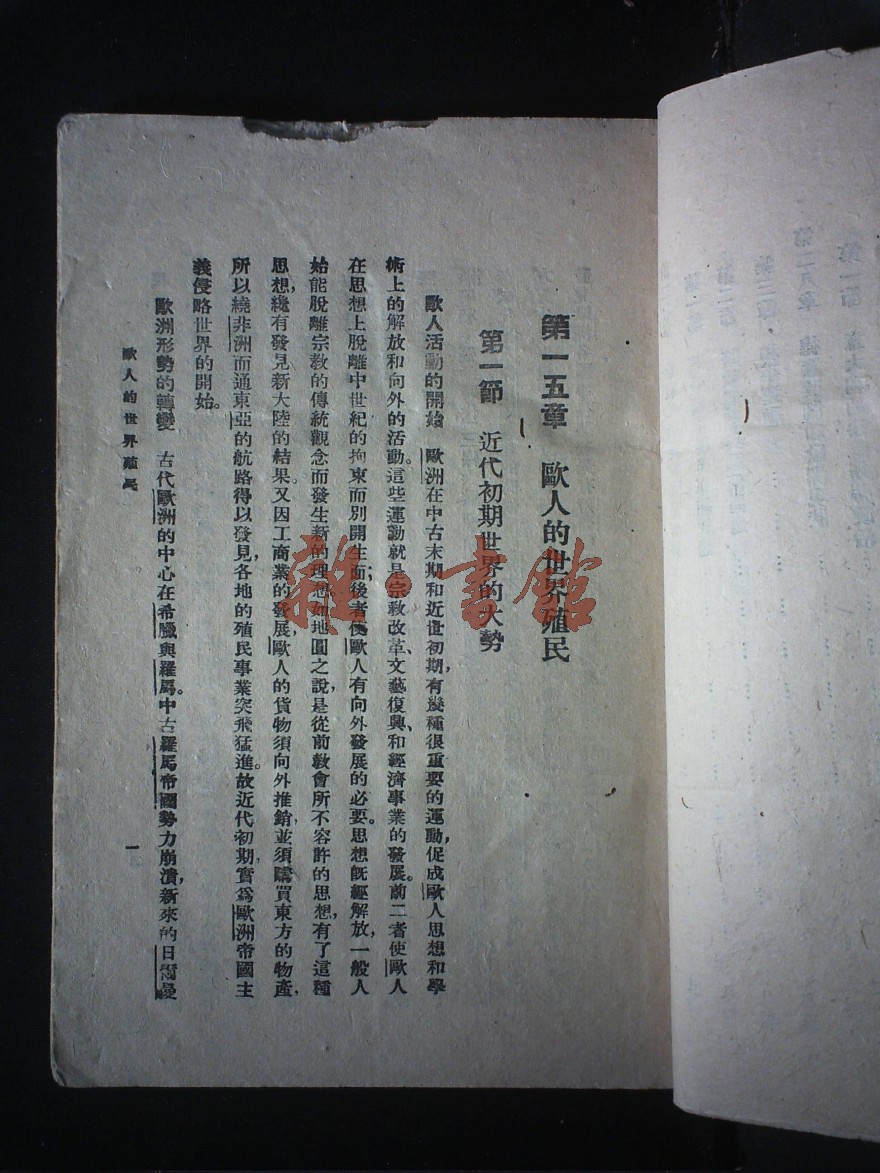 第一五章　歐人的世界殖民
第一節　近代初期世界的大勢
歐人活動的開始　歐洲在中古末期和近世初期，有幾種很重要的運動，促成歐人思想和學
術上的解放和向外的活動。這些運動就是宗教改革、文藝復興、和經濟事業的發展。前二者使歐人
在思想上脫離中世紀的拘束而別開生面；後者使歐人有向外發展的必要。思想既經解放，一般人
始能脫離宗教的傳統觀念而發生新的理想，如地圓之說，是從前教會所不容許的思想，有了這種
思想，纔有發見新大陸的結果。又因工商業的發展，歐人的貨物須向外推銷，並須購買東方的物產，
所以繞非洲而通東亞的航路得以發見，各地的殖民事業突飛猛進。故近代初期，實爲歐洲帝國主
義侵略世界的開始。
歐洲形勢的轉變　古代歐洲的中心在希臘與羅馬。中古羅馬帝國勢力崩潰，新來的日爾曼
歐人的世界殖民
一
雜·書館